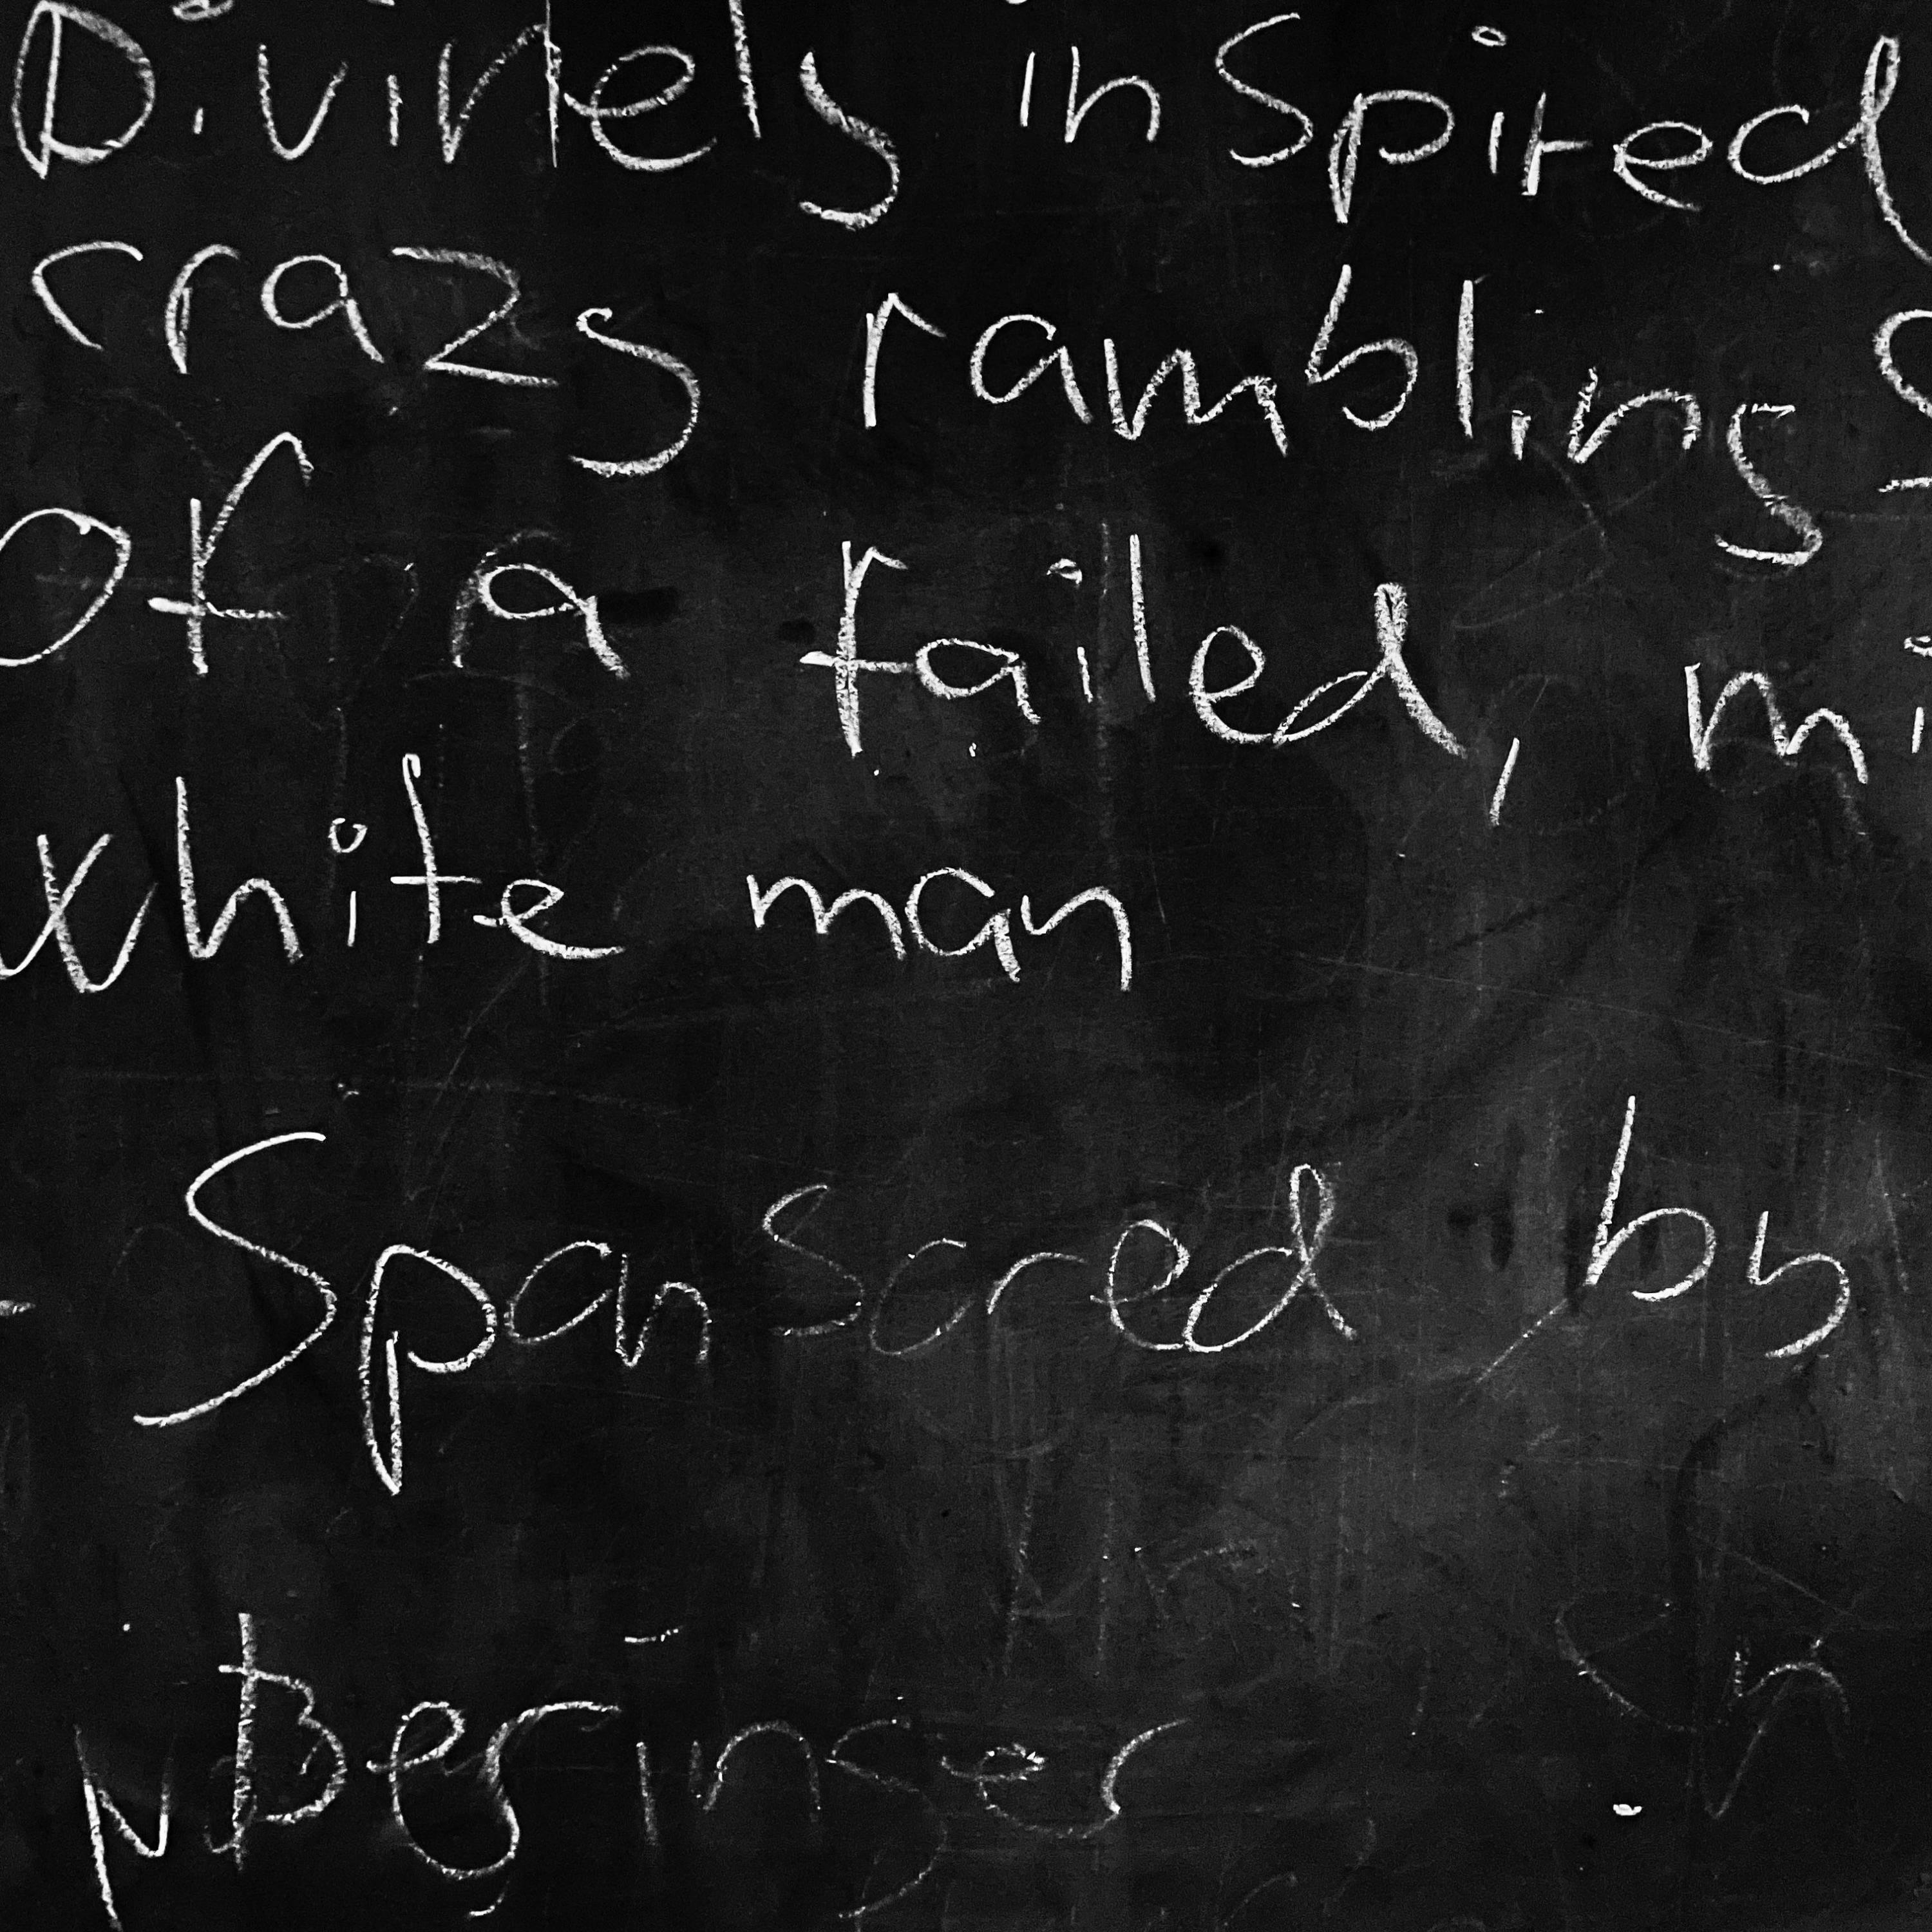 Divinely inspired
crazy ramblings
of a failed, mi
white man
Sponsored by
Beringer